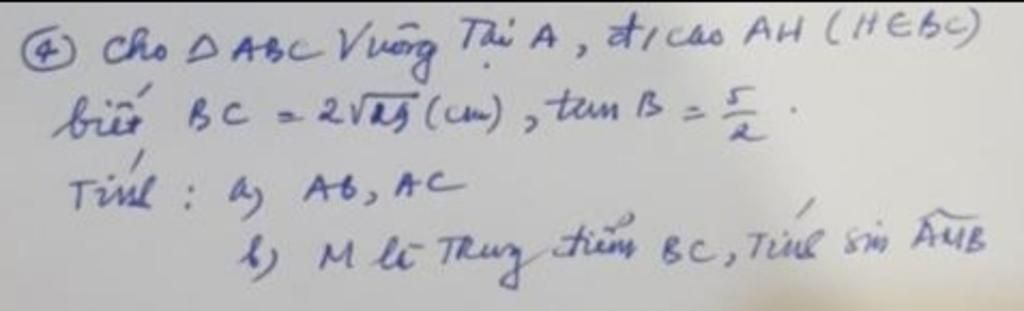 ④ Cho △ ABC Vuông Tại A, đ/cao AH (H∈BC)
biết BC = 2√29 (cm), tan B = 5/2.
Tính: a) AB, AC
b) M là Trung điểm BC, Tính sin AMB